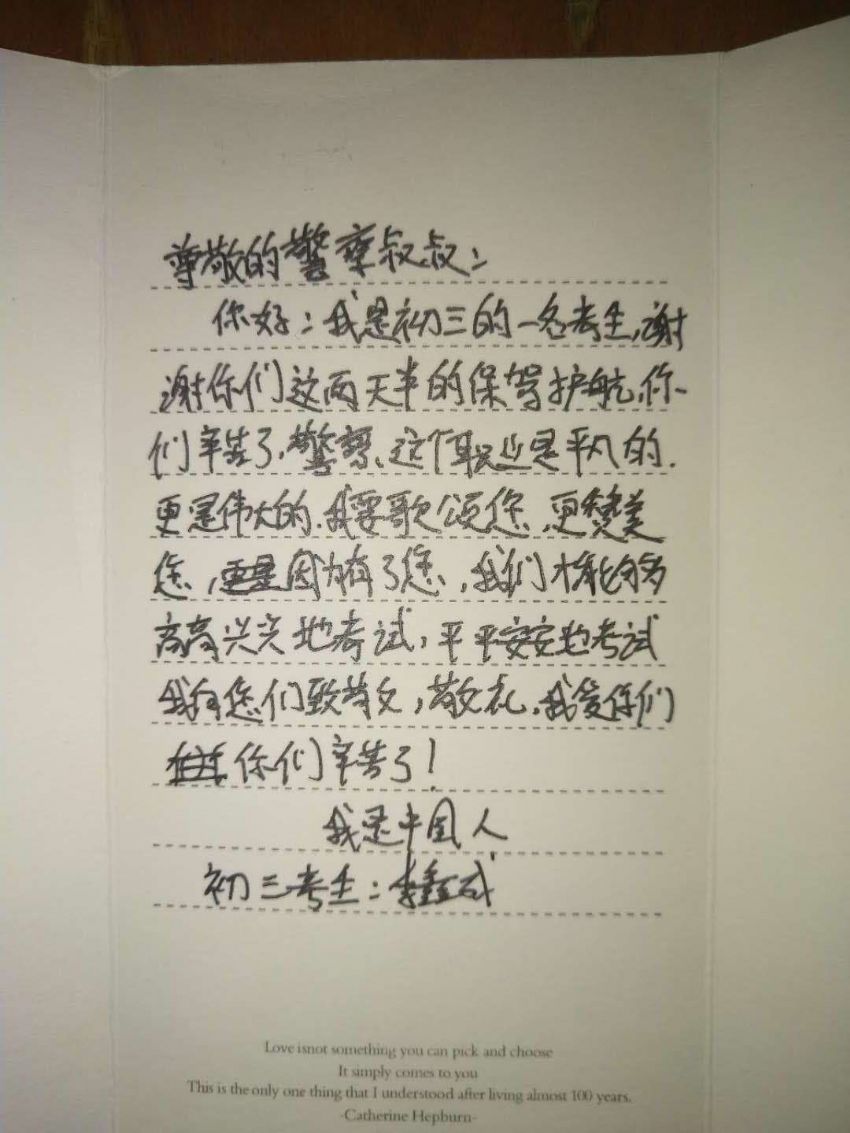 尊敬的警察叔叔：
你好：我是初三的一名考生，谢
谢你们这两天半的保驾护航，你
们辛苦了，警察、这个职业是平凡的.
更是伟大的.我要歌颂您、更赞美
您，因为有了您，我们才能够
高高兴兴地考试，平平安安地考试
我向您们致敬，敬礼，我爱你们
你们辛苦了！
我是中国人
初三考生：李鑫成
Love isnot something you can pick and choose
It simply comes to you
This is the only one thing that I understood after living almost 100 years.
-Catherine Hepburn-